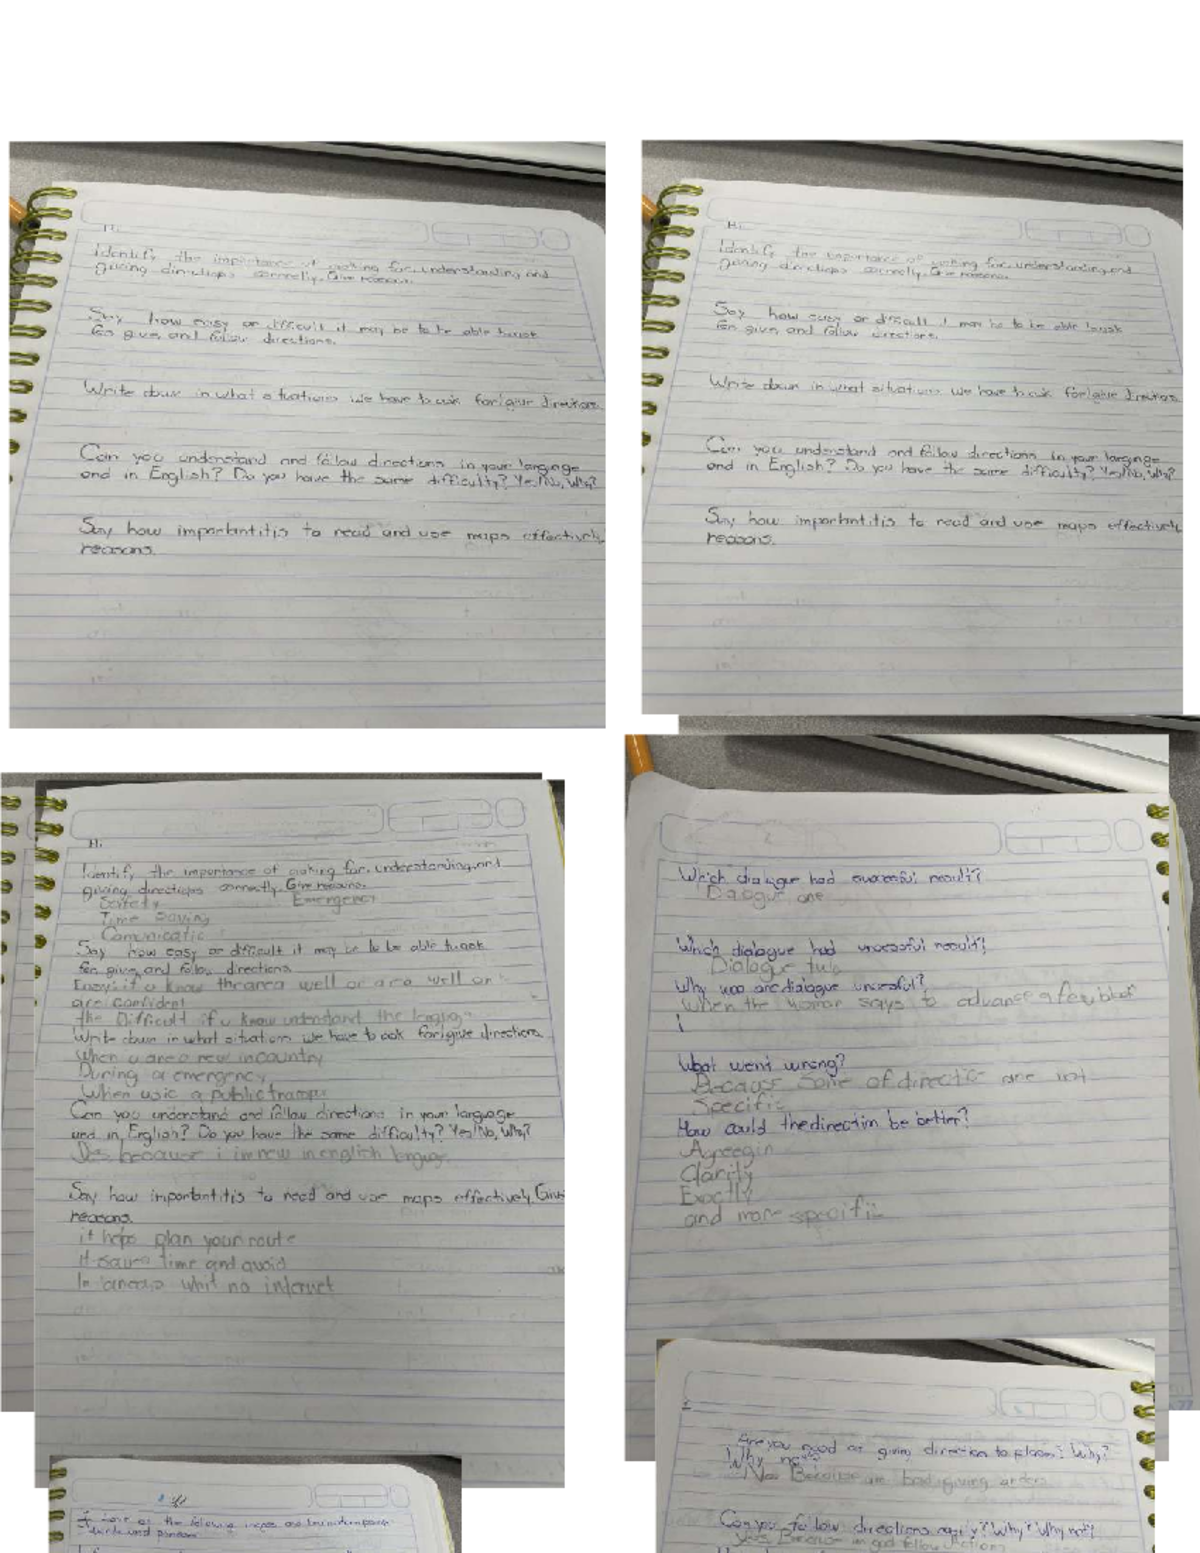 Hi.
Identify the importance of asking for, understanding and
giving directions correctly. Give reasons.
Say how easy or difficult it may be to be able to ask
for give, and follow directions.
Write down in what situations we have to ask for/give directions.
Can you understand and follow directions in your language
and in English? Do you have the same difficulty? Yes/No, Why?
Say how important it is to read and use maps effectively
reasons.
Hi.
Identify the importance of asking for, understanding and
giving directions correctly. Give reasons.
Say how easy or difficult it may be to be able to ask
for give, and follow directions.
Write down in what situations we have to ask for/give directions
Can you understand and follow directions in your language
and in English? Do you have the same difficulty? Yes/No, Why?
Say how important it is to read and use maps effectively
reasons.
Hi.
Identify the importance of asking for, understanding, and
giving directions correctly. Give reasons.
Safety Emergency
Time Saving
Comunicatio
Say how easy or difficult it may be to be able to ask
for give, and follow directions
Easy: if u know the area well or area well or
are confident
the Difficult if u know understand the
Write down in what situations we have to ask for/give directions
When u are a new in country
During a emergency
When usic a public
Can you understand and follow directions in your language
and in English? Do you have the same difficulty? Yes/No, Why?
because i im new in english
Say how important it is to read and use maps effectively. Give
reasons.
it helps plan your route
It saves time and avoid
In areas whit no internet
Which dialogue had successful result?
Dialogue one
Which dialogue had result?
Dialogue
Why was dialogue
When the woman says to advance a few
What went wrong?
Because some of directio are not
Specific
How could the direction be better?
Clarity
Exactly
and more specific
Are you good at giving direction to places? Why?
Why not?
No Because im bad giving orders
Can you follow directions easily? Why? Why not?
Yes Because im god follow
of the following